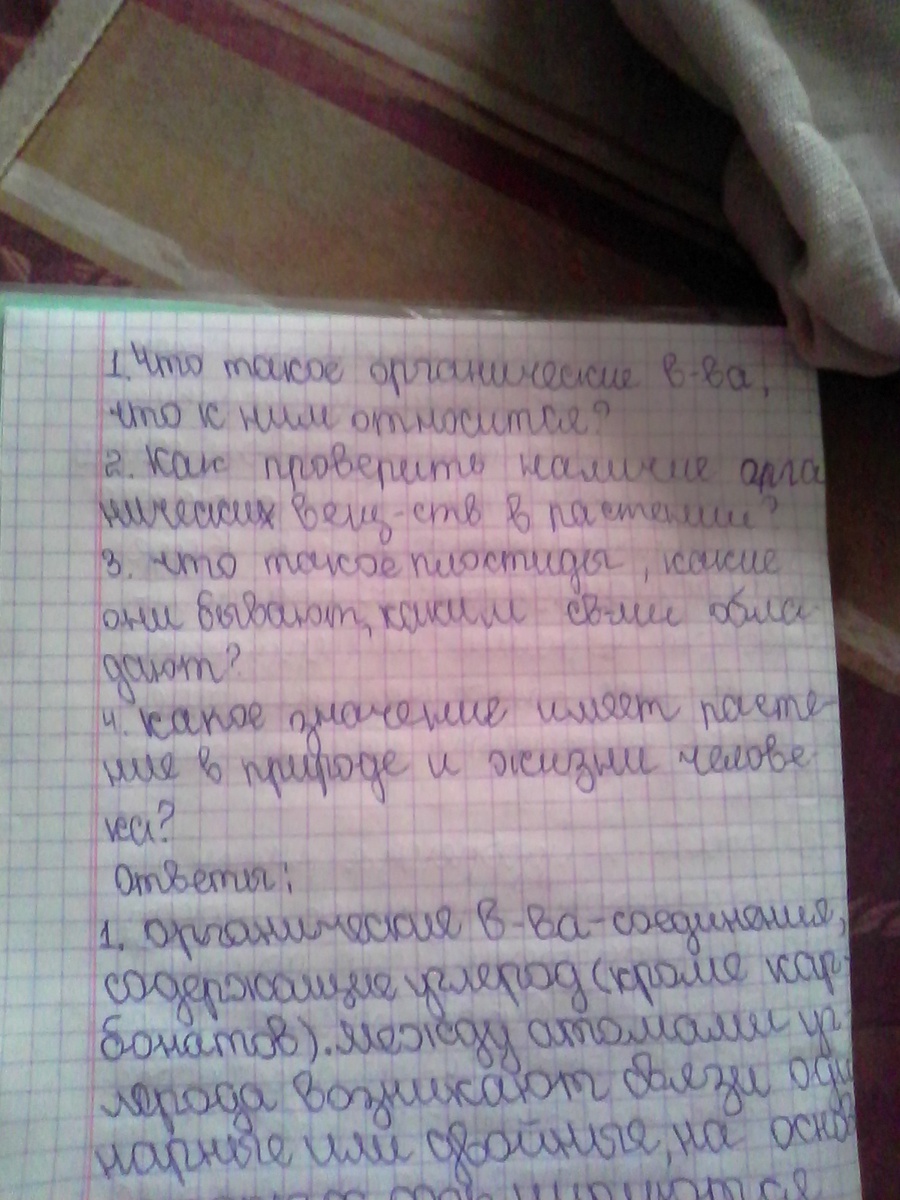 1. Что такое органические в-ва,
что к ним относится?
2. Как проверить наличие орга
нических вещ-ств в растении?
3. что такое пластиды, какие
они бывают, каким св-ми обла
дают?
4. какое значение имеет расте-
ние в природе и жизни челове-
ка?
Ответы:
1. Органические в-ва-соединения,
содержащие углерод (кроме кар-
бонатов). между атомами уг
лерода возникают связи оди
нарные или двойные, на основ